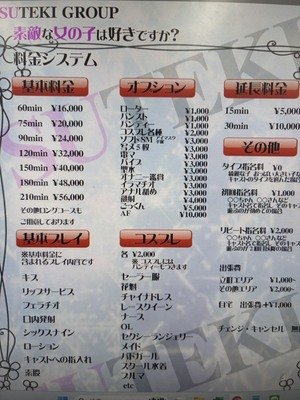 SUTEKI GROUP
素敵な女の子は好きですか?
料金システム
基本料金
60min ¥16,000
75min ¥20,000
90min ¥24,000
120min ¥32,000
150min ¥40,000
180min ¥48,000
210min ¥56,000
その他ロングコースも
ご用意しております
オプション
ローター ¥1,000
パンスト
パンティー ¥1,000
コスプレ各種 ¥2,000
ソフトSM
写メ3枚
電マ
バイブ
聖水
オナニー鑑賞
イラマチオ
アナル舐め
顔射
ごっくん ¥5,000
AF ¥10,000
延長料金
15min ¥5,000
30min ¥10,000
その他
タイプ指名料 ¥0
初回指名料 ¥1,000
リピート指名料 ¥2,000
出張費
立町エリア ¥1,000~
その他エリア ¥2,000~
自宅 出張費+¥1,000
チェンジ・キャンセル 無
基本プレイ
※基本料金に
含まれるプレイ内容です
キス
リップサービス
フェラチオ
口内発射
シックスナイン
ローション
キャストへの指入れ
素股
コスプレ
各 ¥2,000
※ コスプレには
パンティーもつきます
セーラー服
花魁
チャイナドレス
レースクイーン
ナース
OL
セクシーランジェリー
メイド
バドガール
スクール水着
ブルマ
etc